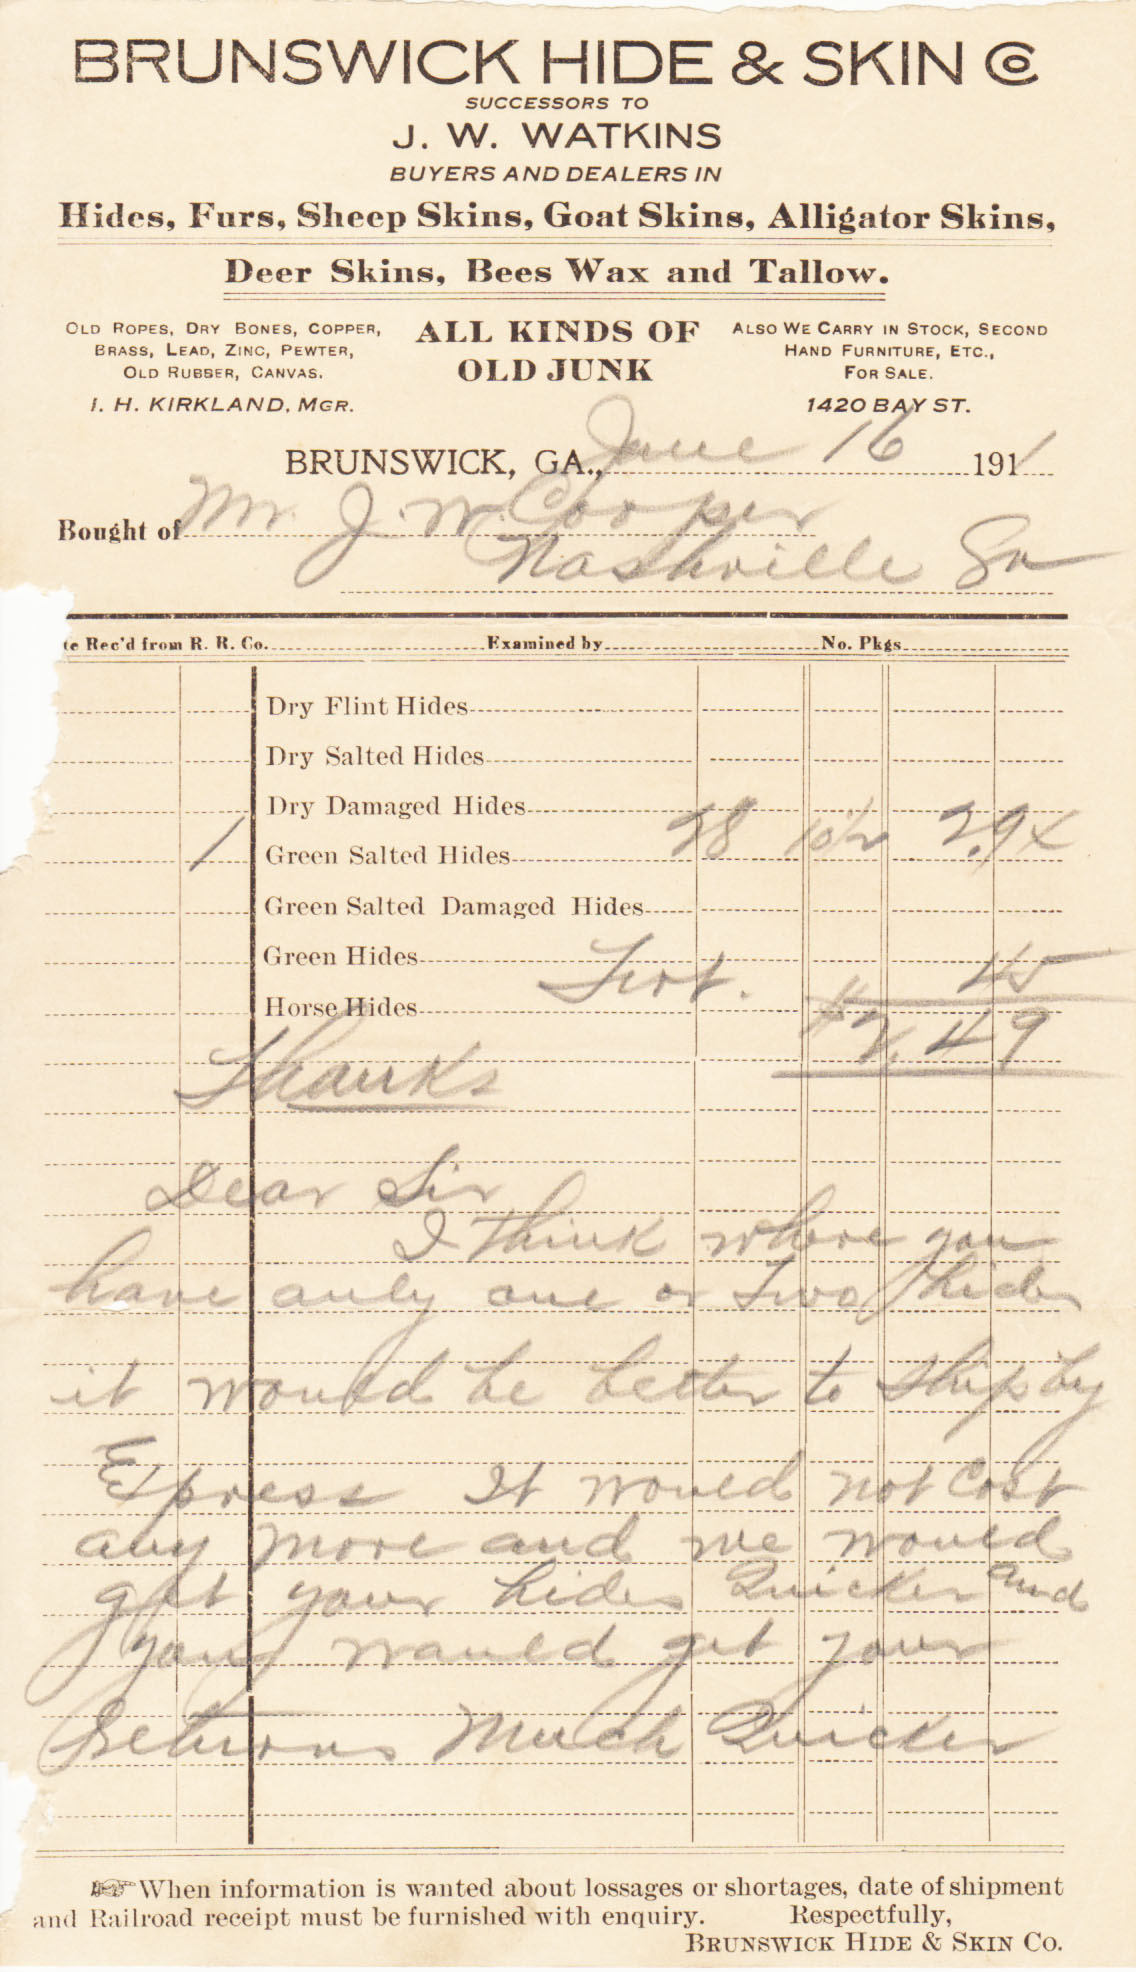 BRUNSWICK HIDE & SKIN Co
SUCCESSORS TO
J. W. WATKINS
BUYERS AND DEALERS IN
Hides, Furs, Sheep Skins, Goat Skins, Alligator Skins,
Deer Skins, Bees Wax and Tallow.
OLD ROPES, DRY BONES, COPPER,
BRASS, LEAD, ZINC, PEWTER,
OLD RUBBER, CANVAS.
I. H. KIRKLAND, MGR.
ALL KINDS OF
OLD JUNK
ALSO WE CARRY IN STOCK, SECOND
HAND FURNITURE, ETC.,
FOR SALE.
1420 BAY ST.
BRUNSWICK, GA., June 16 1911
Bought of Mr. J. W. Cooper
Nashville Ga
te Rec'd from R. R. Co. Examined by No. Pkgs
Dry Flint Hides
Dry Salted Hides
Dry Damaged Hides
1 Green Salted Hides 28 10½ 2.94
Green Salted Damaged Hides
Green Hides
Frt. 45
Horse Hides
$2.49
Thanks
Dear Sir
I think where you
have only one or Two hides
it would be better to ship by
Express It would not Cost
any more and we would
get your hides Quicker and
you would get your
Returns Much Quicker
When information is wanted about lossages or shortages, date of shipment
and Railroad receipt must be furnished with enquiry. Respectfully,
BRUNSWICK HIDE & SKIN CO.